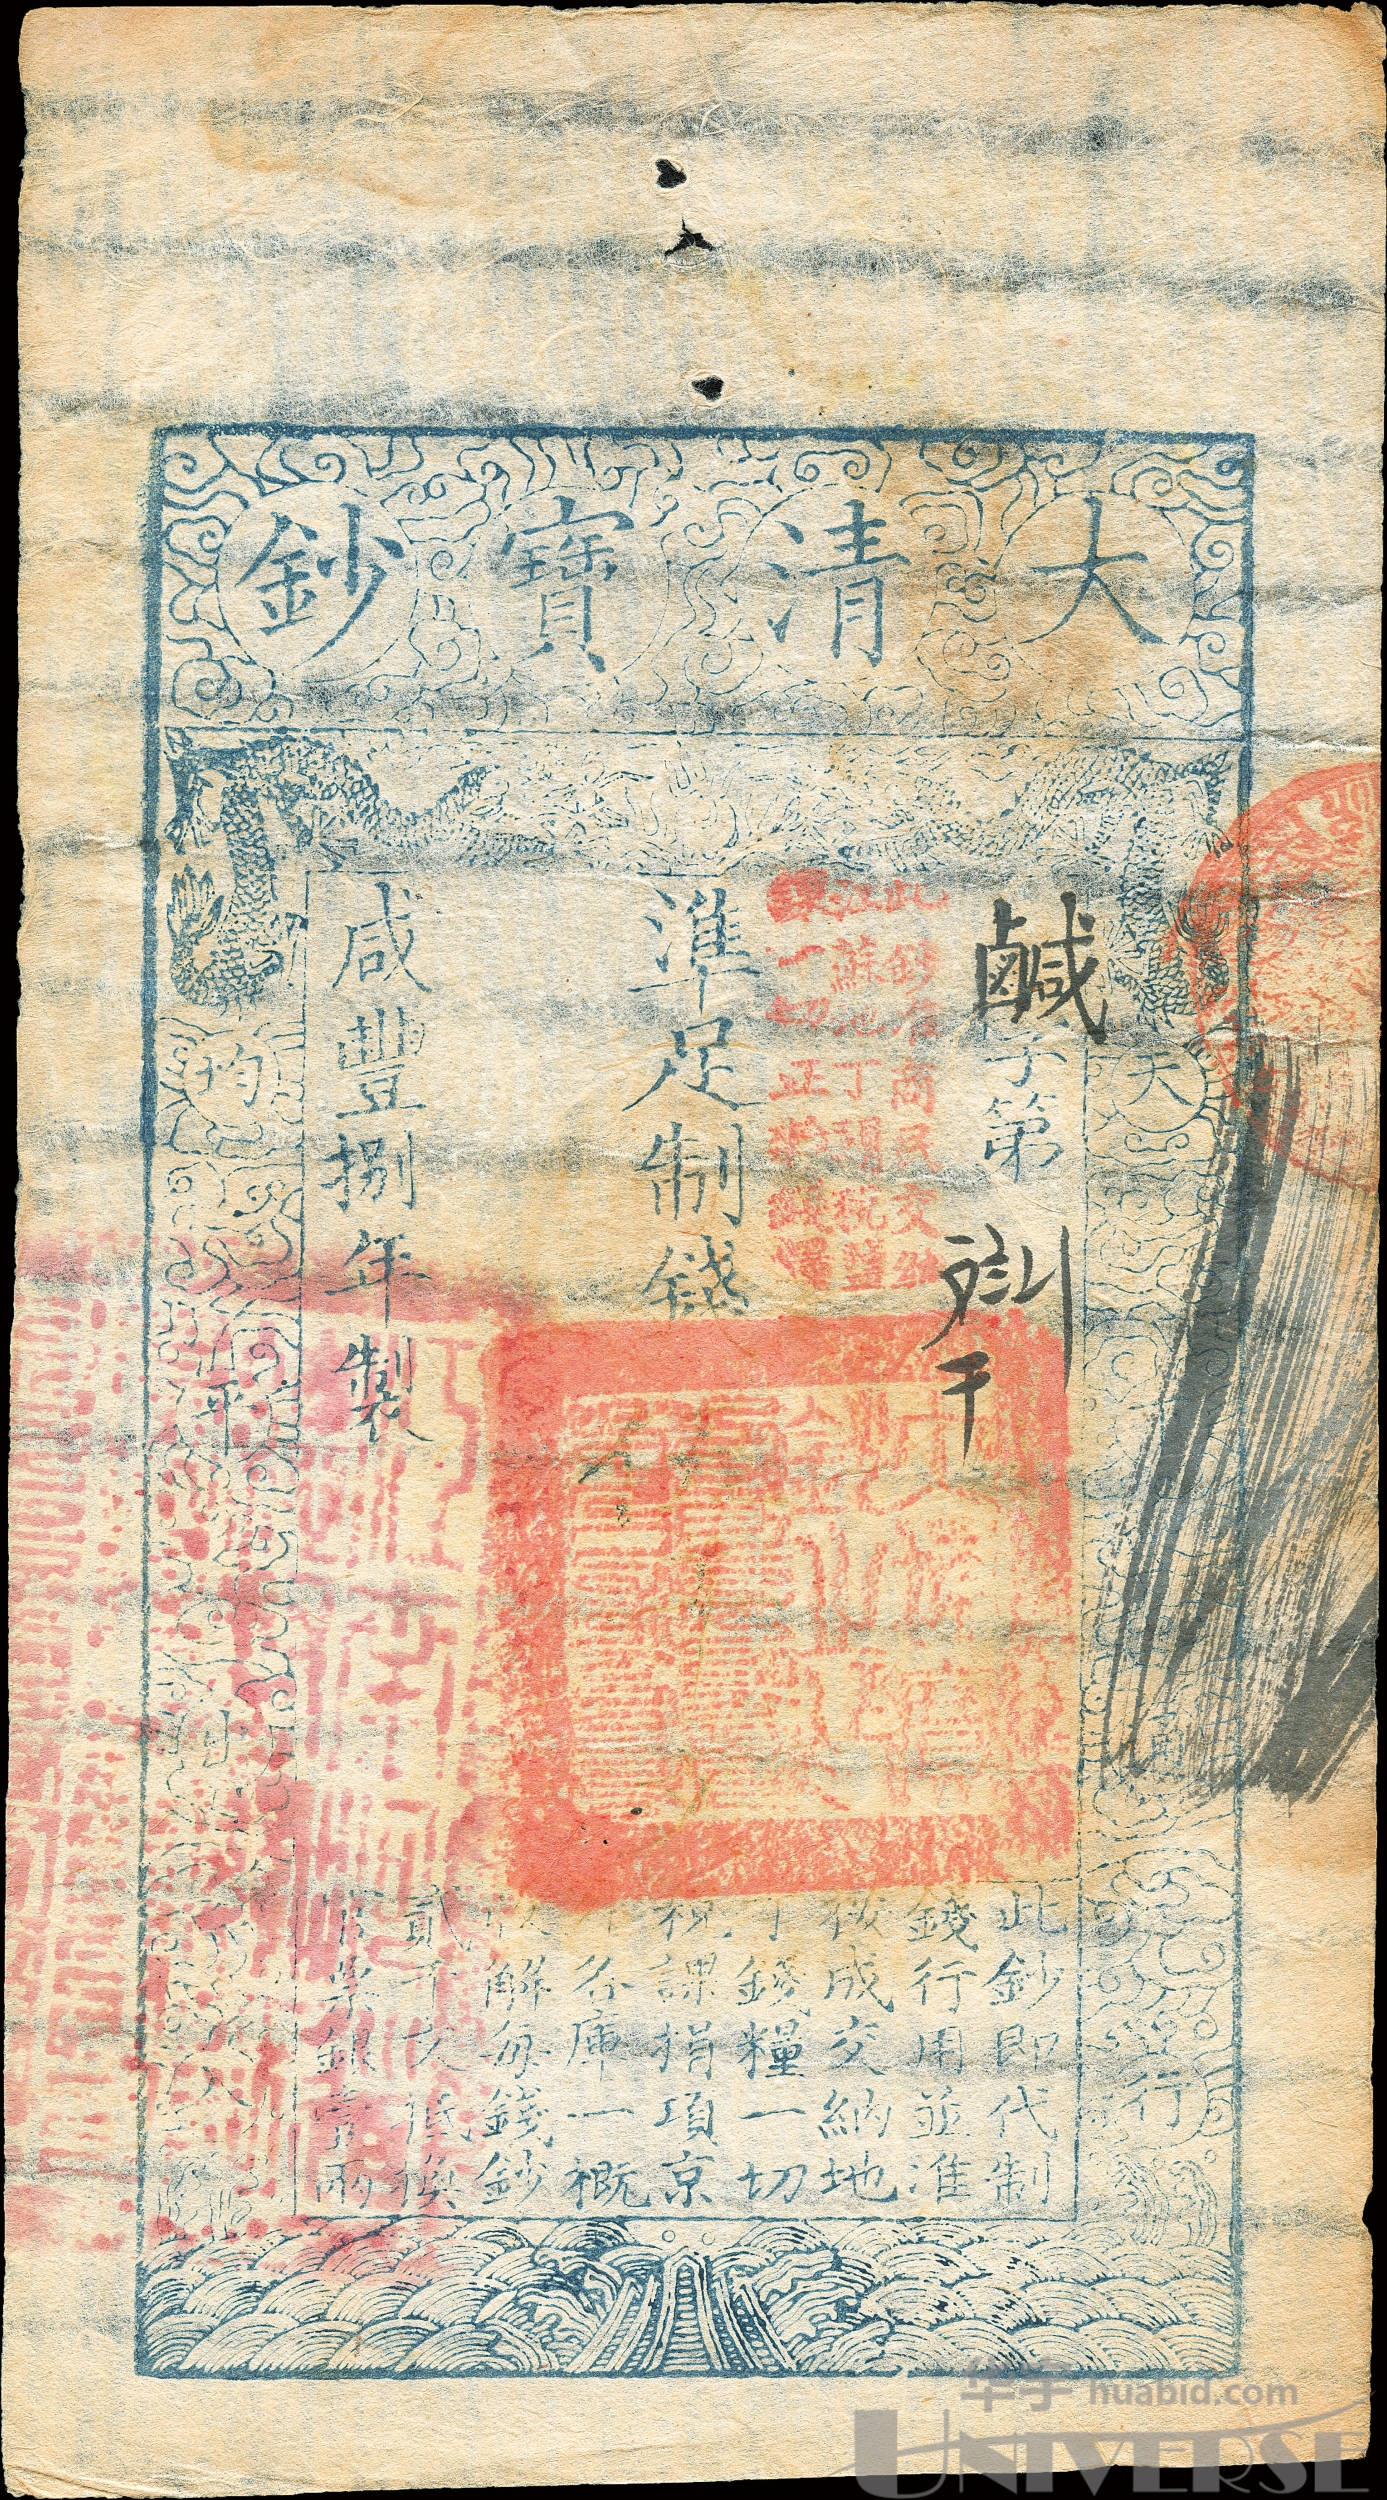 大清寶鈔
鹹字第
準足制錢
咸豐捌年製
此鈔准商民交納
江蘇地丁關稅鹽
課一切正雜錢糧
天
行
均
平
出
入
此鈔即代制
錢行用並準
按成交納地
丁錢糧一切
稅課捐項京
外各庫一概
收解每錢鈔
貳千文抵換
官票銀壹兩
华宇 huabid.com
UNIVERSE